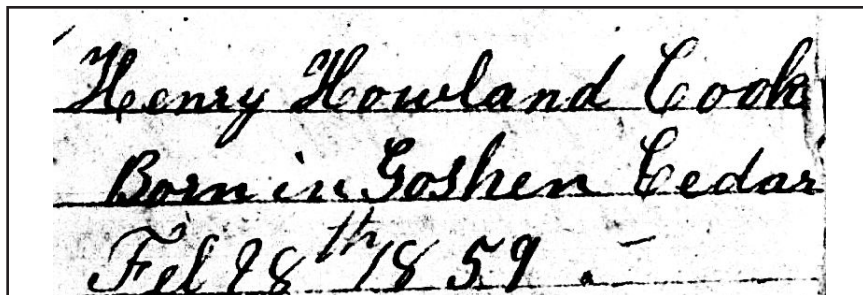 Henry Howland Cook
Born in Goshen Cedar
Feb 28th 1859 . –